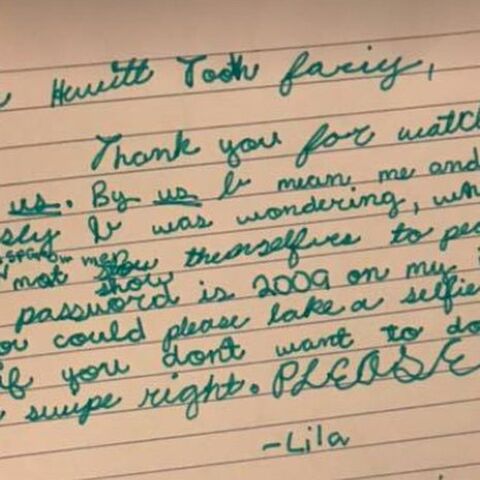 Hewitt Tooth fariy,
Thank you for watch
us. By us I mean me and
sly I was wondering, wh
men
not show themselfves to peo
password is 2009 on my
ou could please take a selfie
if you dont want to do
swipe right. PLEASE
-Lila